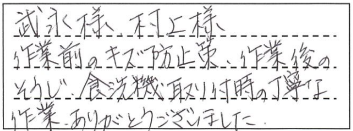 武永様、村上様
作業前のキズ防止策、作業後の
そうじ、食洗機取り付時の丁寧な
作業、ありがとうございました